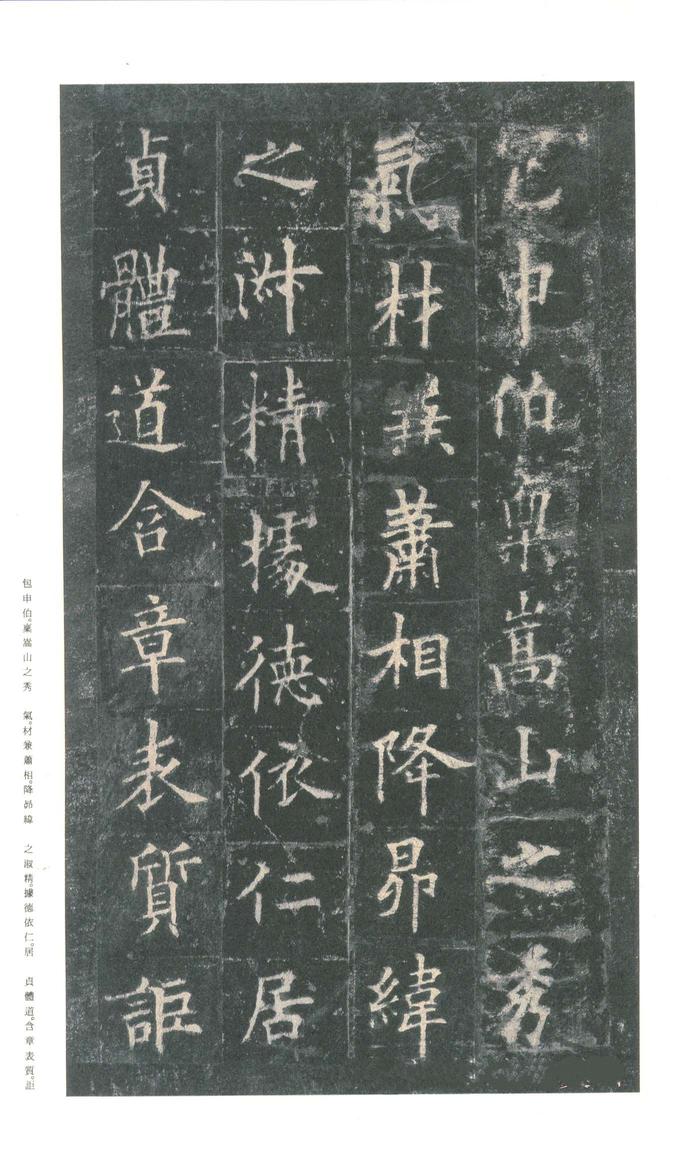 包申伯稟嵩山之秀
氣材兼蕭相降昴緯
之淑精據德依仁居
貞體道含章表質詎
包申伯。稟嵩山之秀　氣。材兼蕭相。降昴緯　之淑精。據德依仁。居　貞體道。含章表質。詎